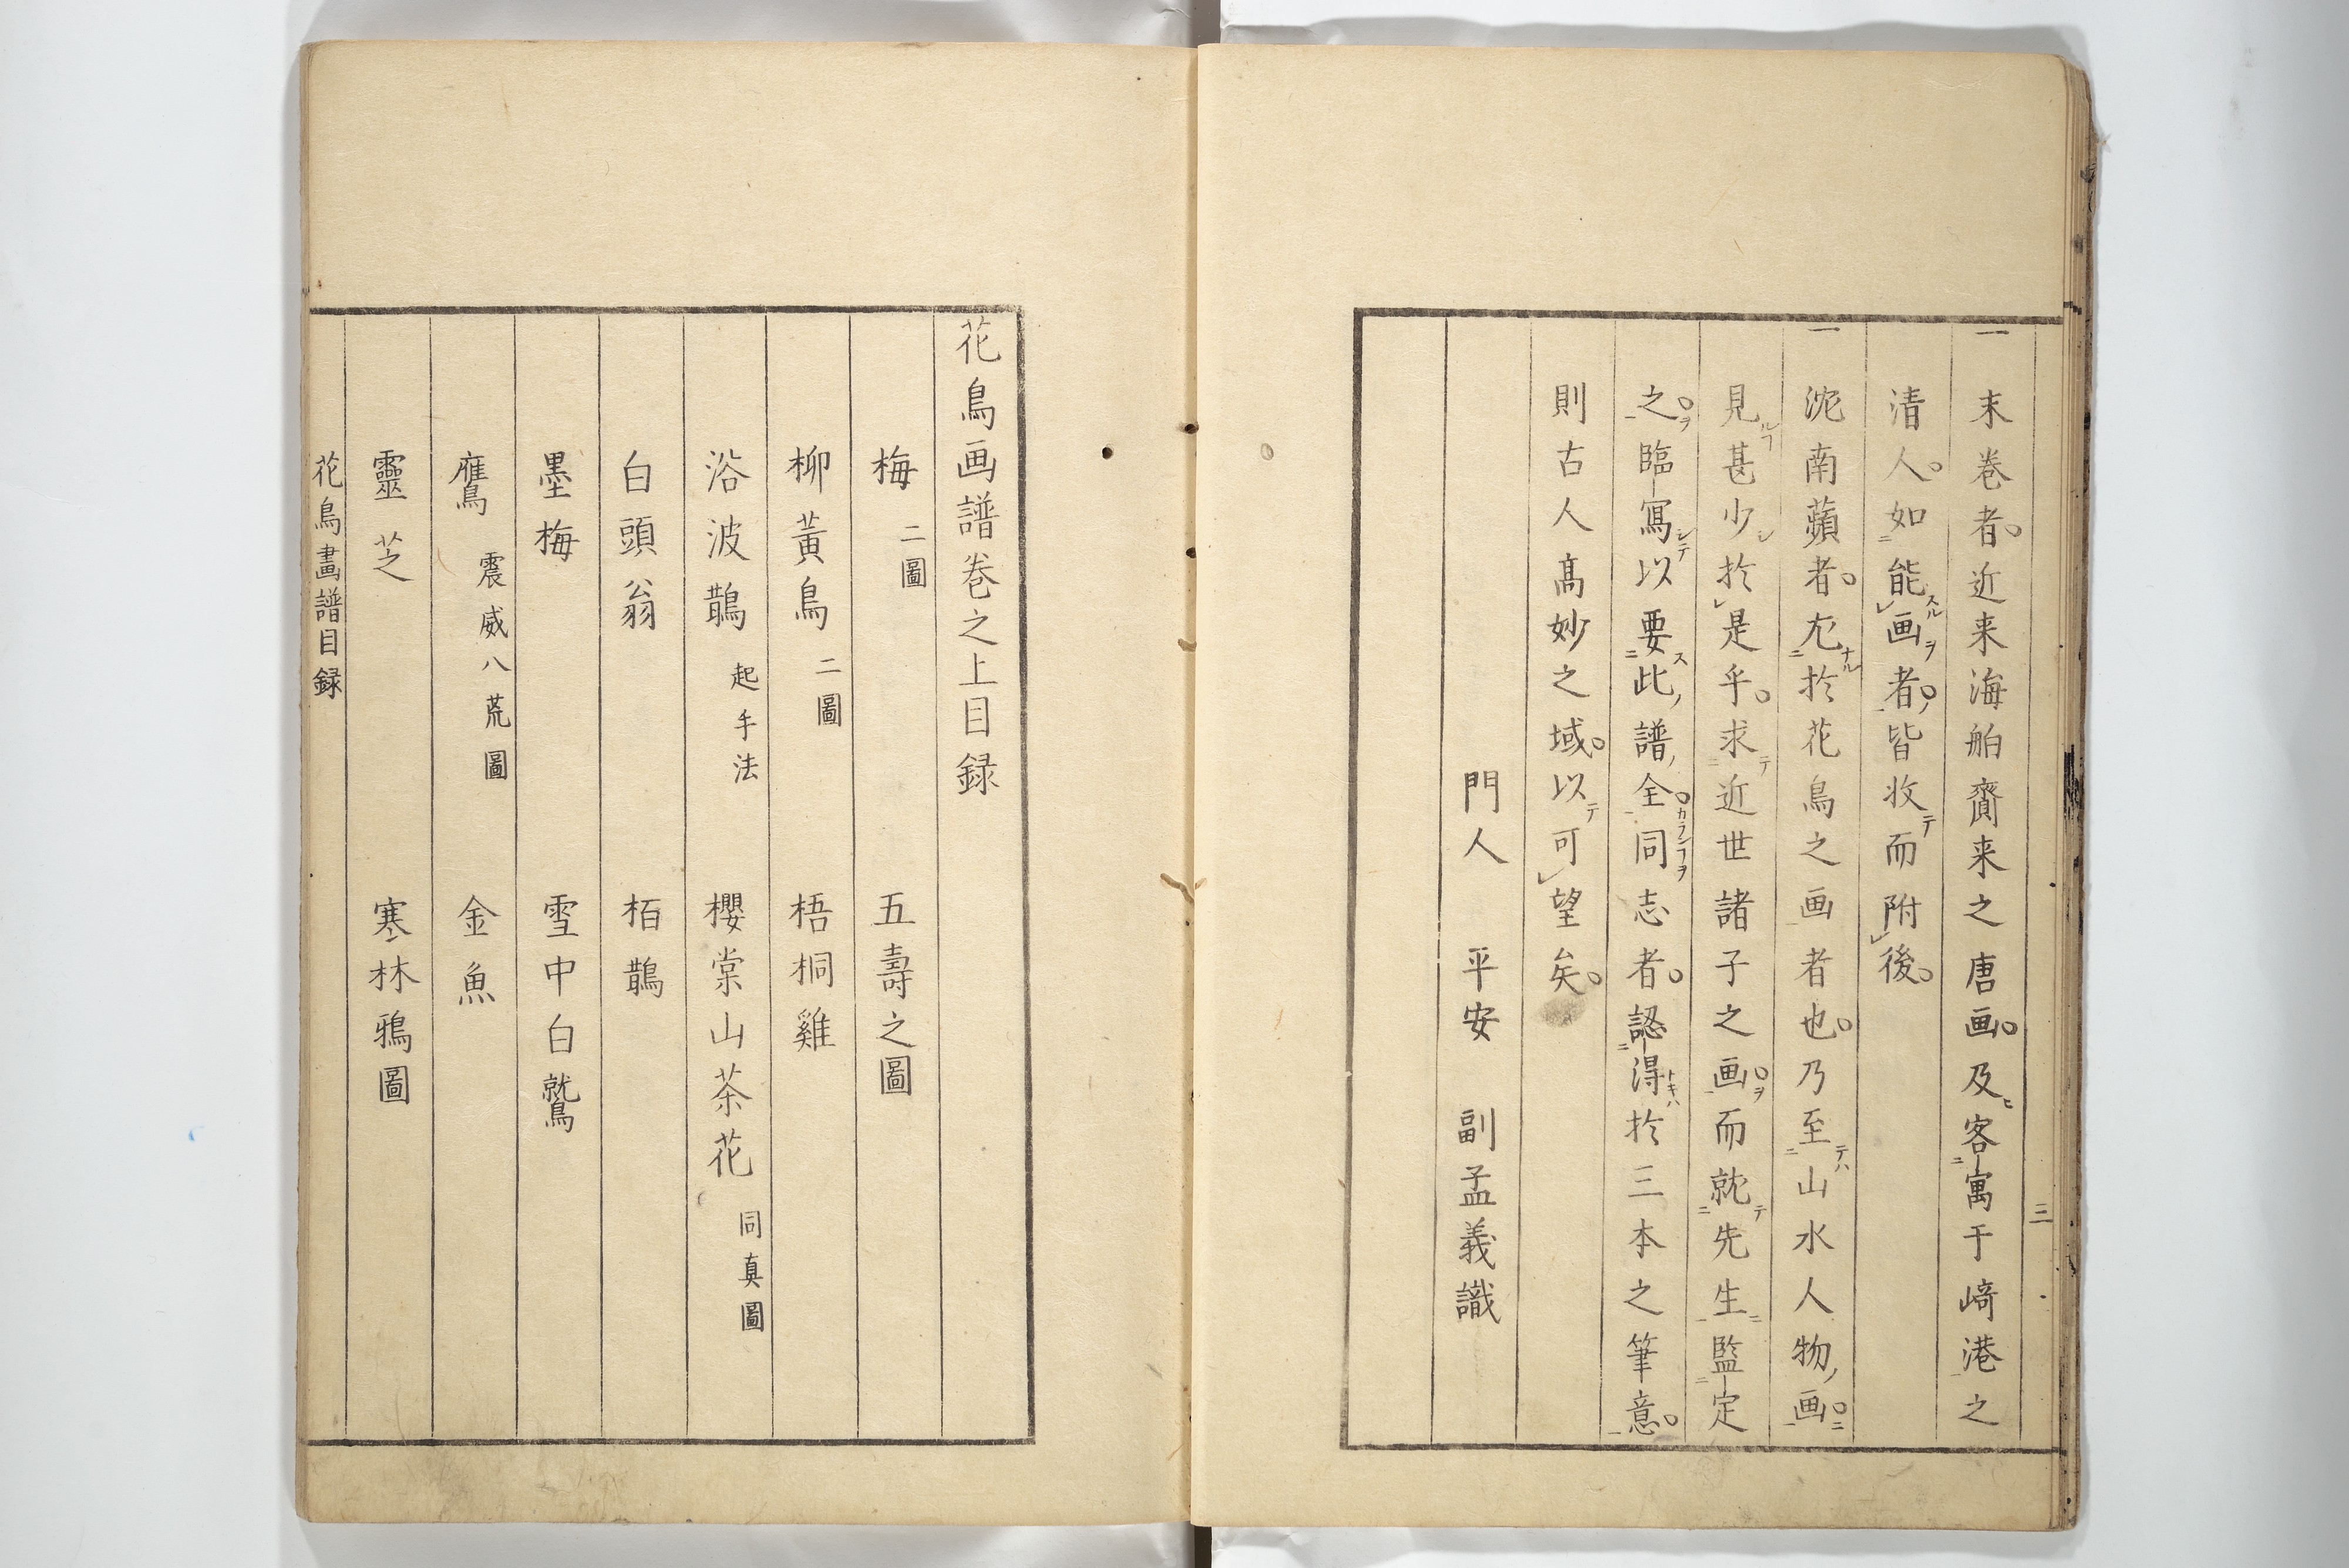 三
一 末巻者。近来海舶齎来之唐画。及ヒ客寓于﨑港之
清人。如能スル画ヲ者。皆收テ而附後。
一 沈南蘋者。尤ナル於花鳥之画者也。乃至テハ山水人物画。ニ
見ルヿ甚少シ於是乎。求テ近世諸子之画。ヲ而就テ先生監定
之。ヲ臨寫シテ以要ス此譜全。カランヿヲ同志者。認得トキハ於三本之筆意。
則古人髙妙之域。以テ可望矣。
門人 平安 副孟義識
花鳥画譜巻之上目録
梅 二圖 五壽之圖
柳黃鳥 二圖 梧桐雞
浴波鵲 起手法 櫻棠山茶花 同真圖
白頭翁 栢鵲
墨梅 雪中白鷲
鷹 震威八荒圖 金魚
靈芝 寒林鴉圖
花鳥畫譜目録